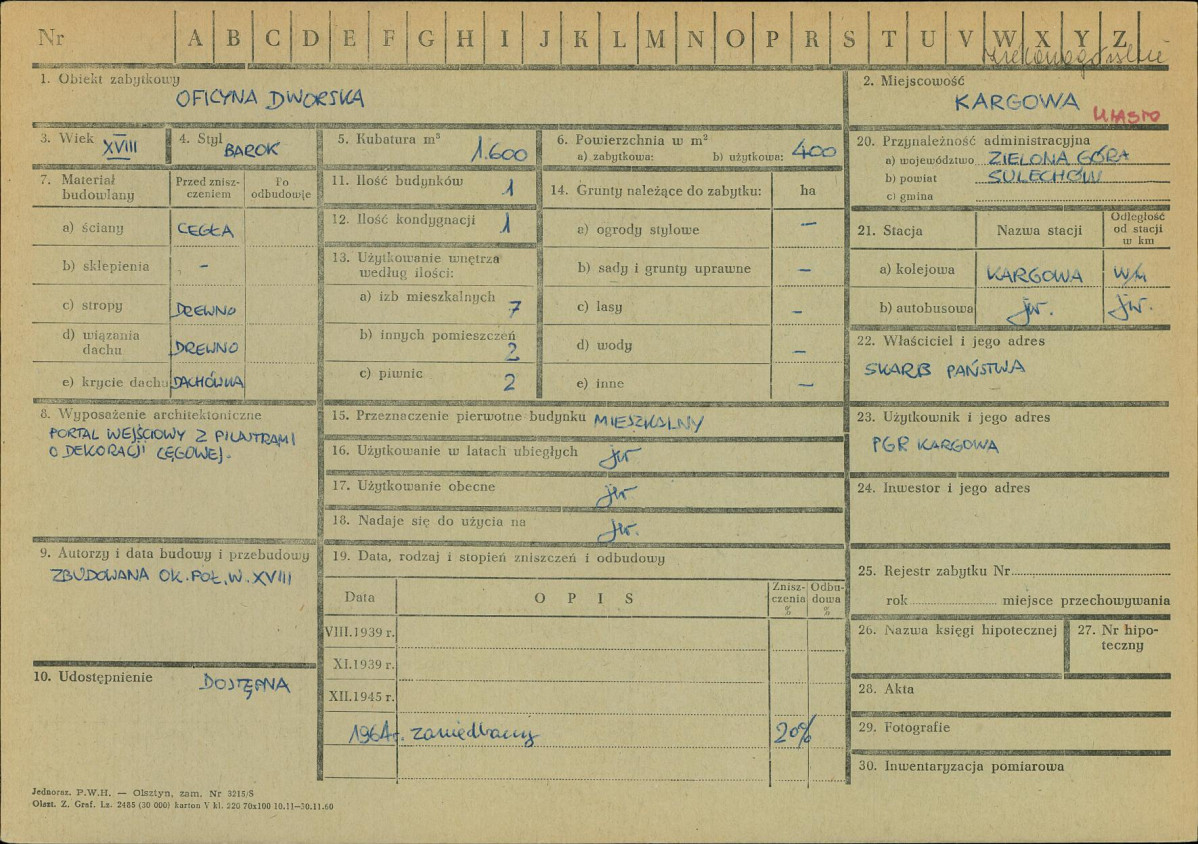 Nr A B C D E F G H I J K L M N O P R S T U V W X Y Z
1. Obiekt zabytkowy
OFICYNA DWORSKA
2. Miejscowość
KARGOWA
MIASTO
3. Wiek XVIII
4. Styl BAROK
5. Kubatura m³ 1.600
6. Powierzchnia w m²
a) zabytkowa: b) użytkowa: 400
20. Przynależność administracyjna
a) województwo ZIELONA GÓRA
b) powiat SULECHÓW
c) gmina
7. Materiał budowlany
Przed znisz-
czeniem
Po
odbudowie
a) ściany CEGŁA
b) sklepienia –
c) stropy DREWNO
d) wiązania
dachu DREWNO
e) krycie dachu DACHÓWKA
11. Ilość budynków 1
12. Ilość kondygnacji 1
13. Użytkowanie wnętrza
według ilości:
a) izb mieszkalnych 7
b) innych pomieszczeń 2
c) piwnic 2
14. Grunty należące do zabytku: ha
a) ogrody stylowe –
b) sady i grunty uprawne –
c) lasy –
d) wody –
e) inne –
21. Stacja Nazwa stacji
Odległość
od stacji
w km
a) kolejowa KARGOWA W/M
b) autobusowa jw. jw.
22. Właściciel i jego adres
SKARB PAŃSTWA
8. Wyposażenie architektoniczne
PORTAL WEJŚCIOWY Z PILASTRAMI
O DEKORACJI CĘGOWEJ.
15. Przeznaczenie pierwotne budynku MIESZKALNY
16. Użytkowanie w latach ubiegłych jw
17. Użytkowanie obecne jw
18. Nadaje się do użycia na jw.
23. Użytkownik i jego adres
PGR KARGOWA
24. Inwestor i jego adres
9. Autorzy i data budowy i przebudowy
ZBUDOWANA OK. POŁ. W. XVIII
19. Data, rodzaj i stopień zniszczeń i odbudowy
Data OPIS
Znisz-
czenia
%
Odbu-
dowa
%
VIII.1939 r.
XI.1939 r.
XII.1945 r.
1964r. zaniedbany 20%
25. Rejestr zabytku Nr
rok miejsce przechowywania
26. Nazwa księgi hipotecznej
27. Nr hipo-
teczny
10. Udostępnienie DOSTĘPNA
28. Akta
29. Fotografie
30. Inwentaryzacja pomiarowa
Jednoraz. P.W.H. — Olsztyn, zam. Nr 3215/S
Olszt. Z. Graf. Lz. 2485 (30 000) karton V kl. 220 70x100 10.11—30.11.60